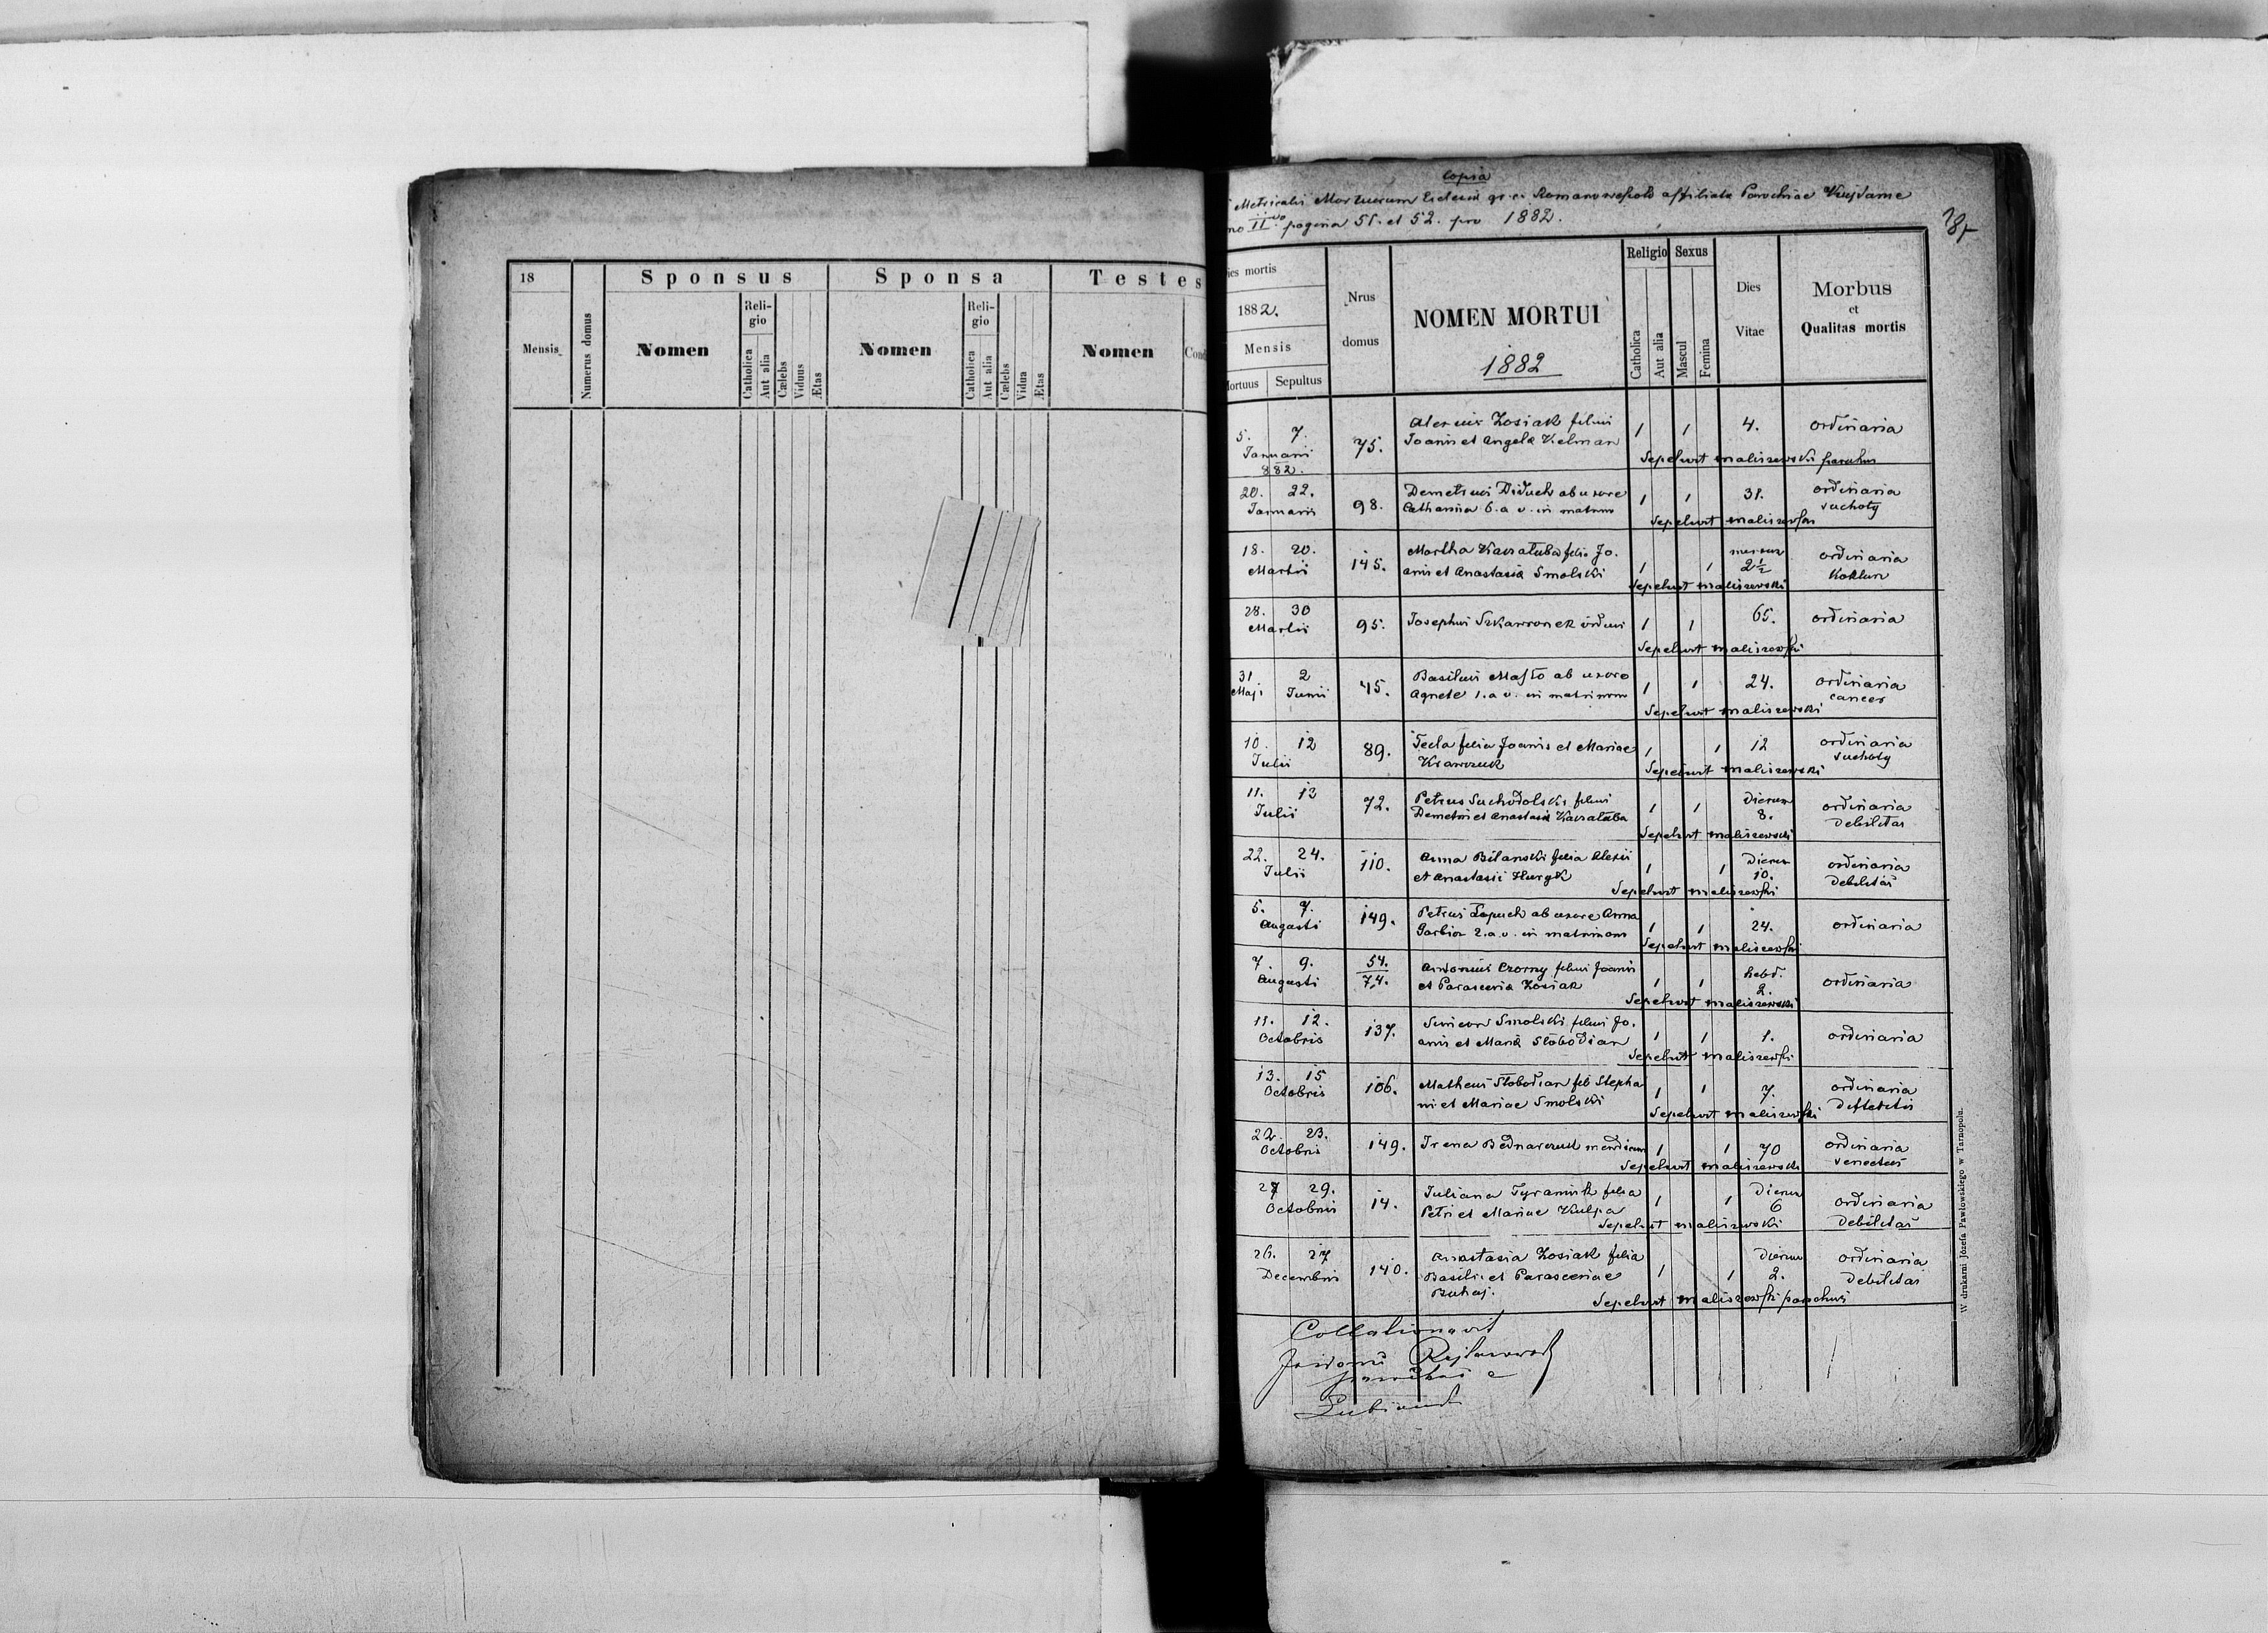 18
Sponsus
Sponsa
Testes
Mensis
Numerus domus
Nomen
Reli-
gio
Catholica
Aut alia
Cælebs
Viduus
Ætas
Nomen
Reli-
gio
Catholica
Aut alia
Cælebs
Vidua
Ætas
Nomen
Cond
Copia
Metricalis Mortuorum gr. c. affiliata Parochiae
II pagina 51. et 52. pro 1882.
mortis
1882.
Mensis
Mortuus
Sepultus
Nrus
domus
NOMEN MORTUI
1882
Religio
Catholica
Aut alia
Sexus
Mascul
Femina
Dies
Vitae
Morbus
et
Qualitas mortis
5. 7. Alexius Zosiak filius 4. ordinaria
Januarii 75. Joannis et Angela Kelman 1 1
882. Sepelivit Maliszewski parochus
20. 22. 98. Demetrius Diduch ab uxore 1 1 31. ordinaria
Januarii Catharina 6. a v. in matrim suchoty
Sepelivit Maliszewski
18. 20. 145. Martha filia Jo. 1 1 2½ ordinaria
Martii annis et Anastasia Smolski Koklusz
Sepelivit Maliszewski
28. 30 95. Josephus Szkawronek viduus 1 1 65. ordinaria
Martii
Sepelivit Maliszewski
31 2 45. Basilius ab uxore 1 1 24. ordinaria
Maji Junii Agnete 1. a v. in matrimon cancer
Sepelivit Maliszewski
10. 12 89. Tecla filia Joannis et Mariae 1 1 12 ordinaria
Julii Krawczuk suchoty
Sepelivit Maliszewski
11. 13 72. Petrus Suchodolski filius 1 1 Dierum ordinaria
Julii Demetrii et Anastasia 8. debilitas
Sepelivit Maliszewski
22. 24. 110. Anna Bilanski filia Alexii 1 1 Dierum ordinaria
Julii et Anastasii 10. debilitas
Sepelivit Maliszewski
5. 7. 149. Petrus Łapuch ab uxore Anna 1 1 24. ordinaria
Augusti 2. a. v. in matrimon
Sepelivit Maliszewski
7. 9. 54. Antonius Czorny filius Joannis 1 1 hebd. ordinaria
Augusti 74. et Parascevia Zosiak 2.
Sepelivit Maliszewski
11. 12. 137. Simeon Smolski filius Jo. 1 1 1. ordinaria
Octobris annis et Maria Słobodian
Sepelivit Maliszewski
13. 15 106. Matheus Słobodian fil Stepha 1 1 7. ordinaria
Octobris ni et Mariae Smolski
Sepelivit Maliszewski
22. 23. 149. Irena Bednarczuk 1 1 70 ordinaria
Octobris senectus
Sepelivit Maliszewski
27 29. 14. Juliana filia 1 1 Dierum ordinaria
Octobris Petri et Mariae Kulpa 6 debilitas
Sepelivit Maliszewski
26. 27 140. Anastasia Zosiak filia 1 1 Dierum ordinaria
Decembris Basilii et Parasceviae 2. debilitas
Buhaj.
Sepelivit Maliszewski parochus
Collationavit
W drukarni Józefa Pawłowskiego w Tarnopolu.